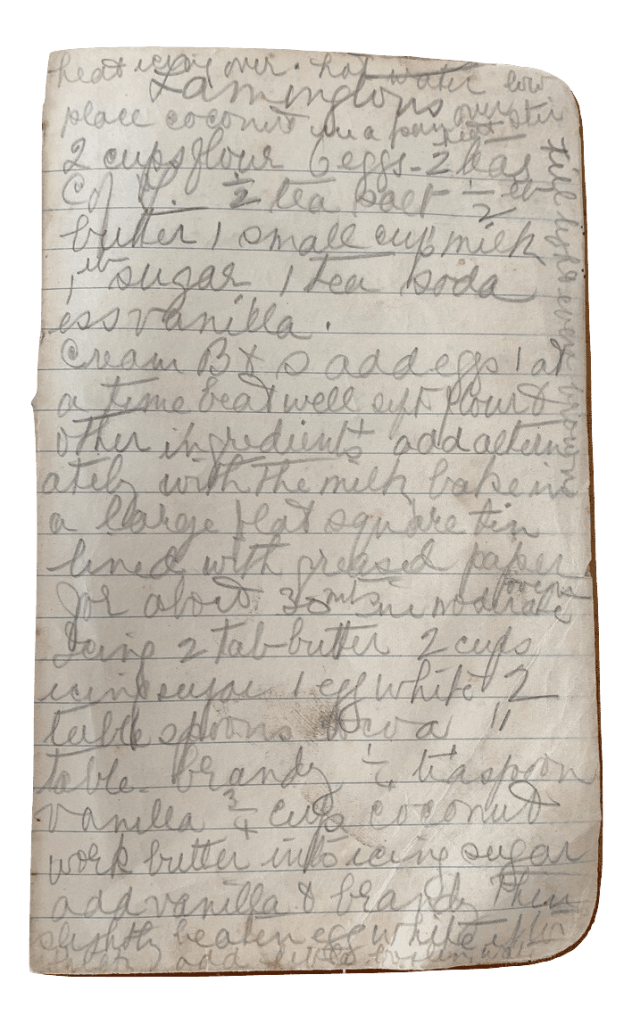 heat icing over hot water low
Lamingtons
place coconut in a pan over
2 cups flour 6 eggs - 2 teas
C of T. ½ tea salt ½ lb
butter 1 small cup milk
1 lb sugar 1 tea soda
ess vanilla.
Cream B & S add eggs 1 at
a time beat well sift flour &
other ingredients add altern
ately with the milk bake in
a large flat square tin
lined with greased paper
for about 30 mts in moderate
oven
Icing 2 tab butter 2 cups
icing sugar 1 egg white 2
table spoons cocoa 1
table - brandy ¼ teaspoon
vanilla ¾ cups coconut
work butter into icing sugar
add vanilla & brandy then
slightly beaten egg white if
add little
till light even brown